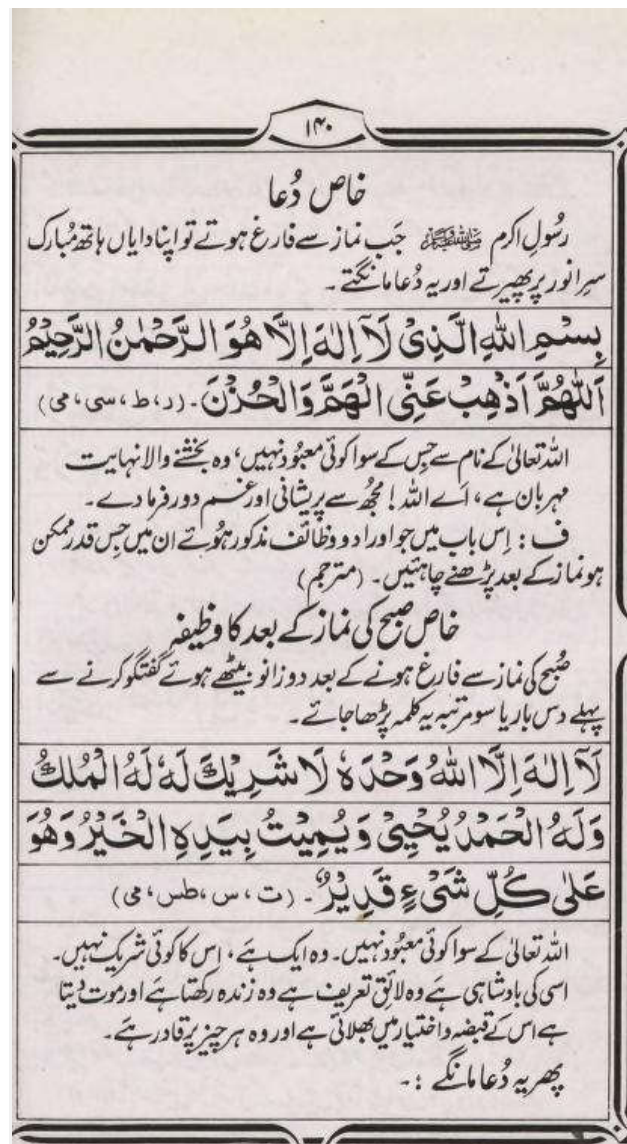 ۱۴۰
خاص دُعا
رسُولِ اکرم ﷺ جَب نماز سے فارغ ہوتے تو اپنا دایاں ہاتھ مُبارک
سرِ انور پر پھیرتے اور یہ دُعا مانگتے ۔
بِسْمِ اللهِ الَّذِیْ لَآ اِلٰهَ اِلَّا هُوَ الرَّحْمٰنُ الرَّحِیْمُ
اَللّٰهُمَّ اَذْهِبْ عَنِّی الْهَمَّ وَالْحُزْنَ ۔ (ر، ط، سی، می)
اللہ تعالیٰ کے نام سے جس کے سوا کوئی معبُود نہیں، وہ بخشنے والا نہایت
مہربان ہے، اَے اللہ ! مجھُ سے پریشانی اور غم دور فرما دے ۔
ف : اِس باب میں جو اوراد و وظائف مذکور ہُوئے ان میں جس قدر ممکن
ہو نماز کے بعد پڑھنے چاہئیں ۔ (مترجم)
خاص صبح کی نماز کے بعد کا وظیفہ
صُبح کی نماز سے فارغ ہونے کے بعد دوزانو بیٹھے ہوئے گفتگو کرنے سے
پہلے دس بار یا سو مرتبہ یہ کلمہ پڑھا جائے ۔
لَآ اِلٰهَ اِلَّا اللهُ وَحْدَهٗ لَا شَرِیْكَ لَهٗ لَهُ الْمُلْكُ
وَلَهُ الْحَمْدُ یُحْیِیْ وَیُمِیْتُ بِیَدِهِ الْخَیْرُ وَهُوَ
عَلٰی كُلِّ شَیْءٍ قَدِیْرٌ ۔ (ت، س، طس، می)
اللہ تعالیٰ کے سوا کوئی معبُود نہیں ۔ وہ ایک ہَے، اس کا کوئی شریک نہیں ۔
اسی کی بادشاہی ہَے وہ لائقِ تعریف ہے وہ زندہ رکھتا ہَے اور موت دیتا
ہے اس کے قبضہ و اختیار میں بھلائی ہے اور وہ ہر چیز پر قادر ہَے ۔
پھر یہ دُعا مانگے :۔